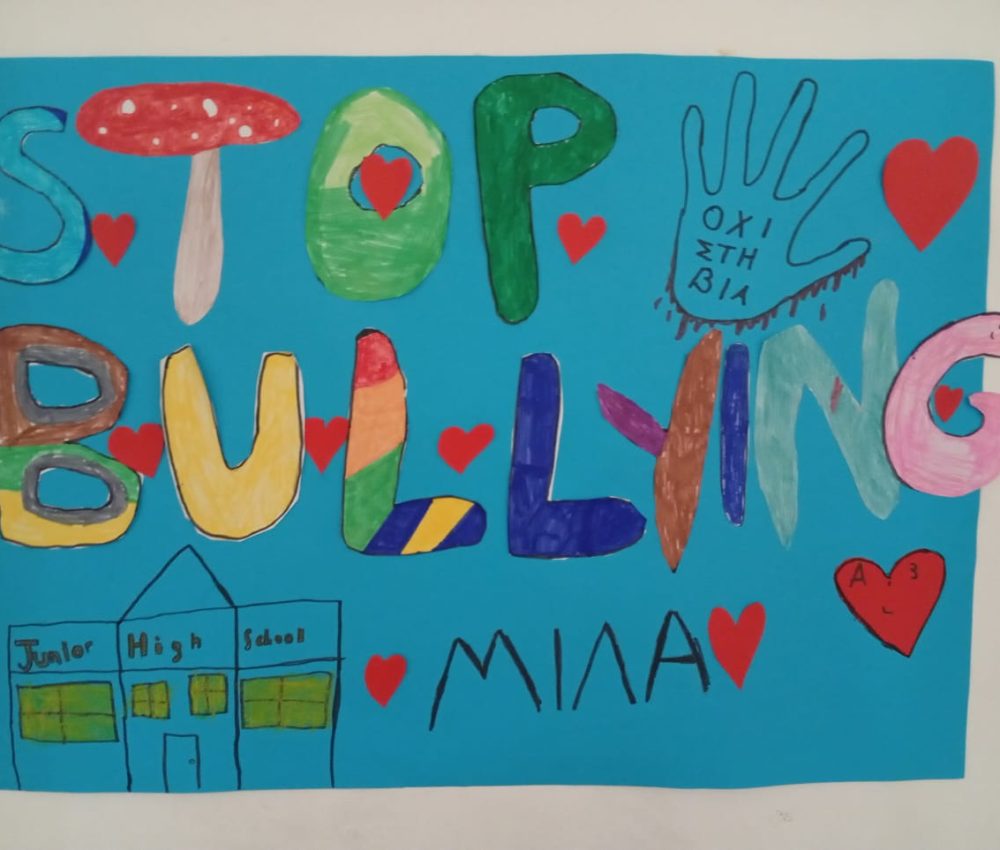 STOP
ΟΧΙ
ΣΤΗ
ΒΙΑ
BULLYING
Junior High School
ΜΙΛΑ
A 3